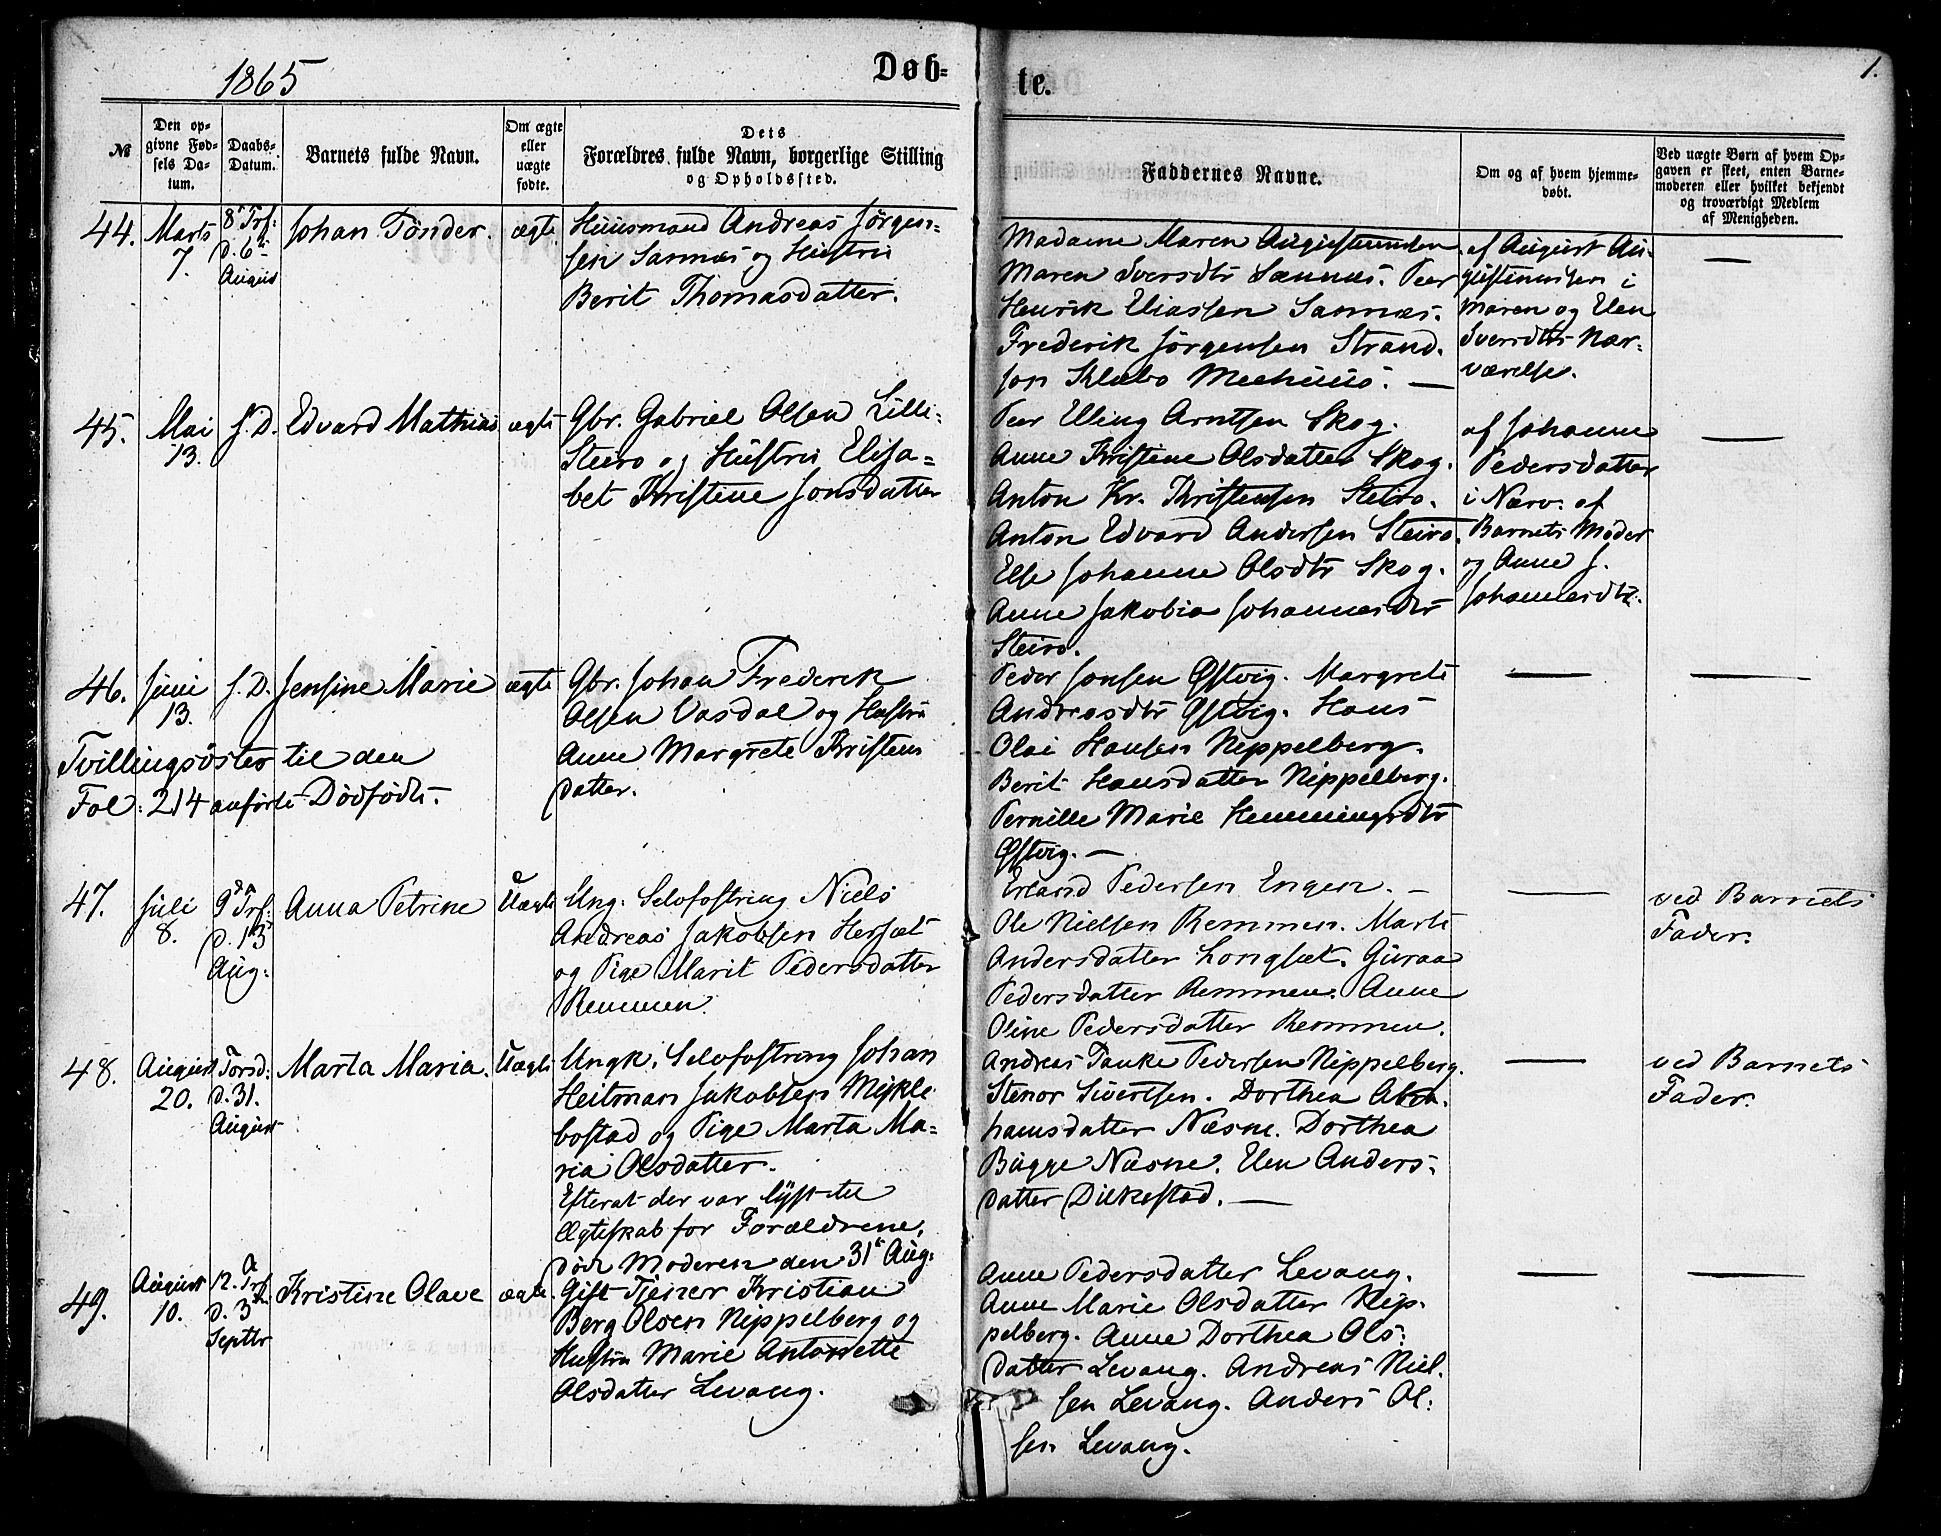 1865
Døb-
te.
1.
№
Den op-
givne Fød-
sels Da-
tum.
Daabs-
Datum.
Barnets fulde Navn.
Om ægte
eller
uægte
fødte.
Dets
Forældres fulde Navn, borgerlige Stilling
og Opholdssted.
Faddernes Navne.
Om og af hvem hjemme-
døbt.
Ved uægte Børn af hvem Op-
gaven er skeet, enten Barne-
moderen eller hvilket bekjendt
og troværdigt Medlem
af Menigheden.
44.
Marts
7.
8d Trf:
d. 6te
August
Johan Tönder.
ægte
Huusmand Andreas Jörgen-
sen Sannæs og Hustru
Berit Thomasdatter.
Madame Maren Augustinussen
Maren Sversdtr Sannæs. Peer
Henrik Eliassen Sannæs.
Frederik Jörgensen Strand.
Jon Klæbo Meehuus. —
af August Au-
gustinussen i
Maren og Elen
Sversdtrs Nær-
værelse.
—
45.
Mai
13.
s. D.
Edvard Mathias
ægte
Gbr. Gabriel Olsen Lille
Steiro og Hustru Elisa-
bet Kristine Jonsdatter
Peer Elling Arntsen Skog.
Anne Kristine Olsdatter Skog.
Anton Kr. Kristensen Steiro.
Anton Edvard Andersen Steiro.
Else Johanne Olsdtr Skog.
Anne Jakobia Johannesdtr
Steiro.
af Johanne
Pedersdatter
i Nærv. af
Barnets Moder
og Anne J.
Johannesdtr.
—
46.
Juni
13.
s. D.
Jensine Marie
ægte
Gbr. Johan Frederik
Olsen Vasdal og Hustru
Anne Margrete Kristens
datter.
Tvillingsöster til den
Fol: 214 anförte Dödfödte.
Peder Jonsen Østvig. Margrete
Andreasdtr Østvig. Hans
Olai Hansen Nippelberg.
Berit Hansdatter Nippelberg.
Pernille Marie Hemmingsdtr
Østvig. —
—
—
47.
Juli
8.
9d Trf:
d. 13
Aug:
Anna Petrine
Uægte
Ung. Selvfostring Niels
Andreas Jakobsen Hersæt
og Pige Marit Pedersdatter
Remmen.
Erland Pedersen Engen. —
Ole Nielsen Remmen. Marte
Andersdatter Longsæt. Guraa
Pedersdatter Remmen. Anne
Oline Pedersdatter Remmen.
—
ved Barnets
Fader.
48.
August
20.
Torsd:
d. 31.
August
Marta Maria.
Uægte
Ungk. Selvfostring Johan
Heitman Jakobsen Mykle
bostad og Pige Marta Ma-
ria Olsdatter.
Efterat der var lyst til
Ægteskab for Forældrene,
döde Moderen den 31te Aug.
Andreas Tanke Pedersen Nippelberg.
Stenor Sivertsen. Dorthea Abra-
hamsdatter Næsne. Dorthea
Bugge Næsne. Elen Anders-
datter Dilkestad. —
—
ved Barnets
Fader.
49.
August
10.
12. Trf
d. 3die
Septbr
Kristine Olave
ægte.
Gift Tjener Kristian
Berg Olsen Nippelberg og
Hustru Marie Antonette
Olsdatter Levang.
Anne Pedersdatter Levang.
Anne Marie Olsdatter Nip-
pelberg. Anne Dorthea Ols-
datter Levang. Andreas Niel-
sen Levang. Anders Ol-
sen Levang.
—
—